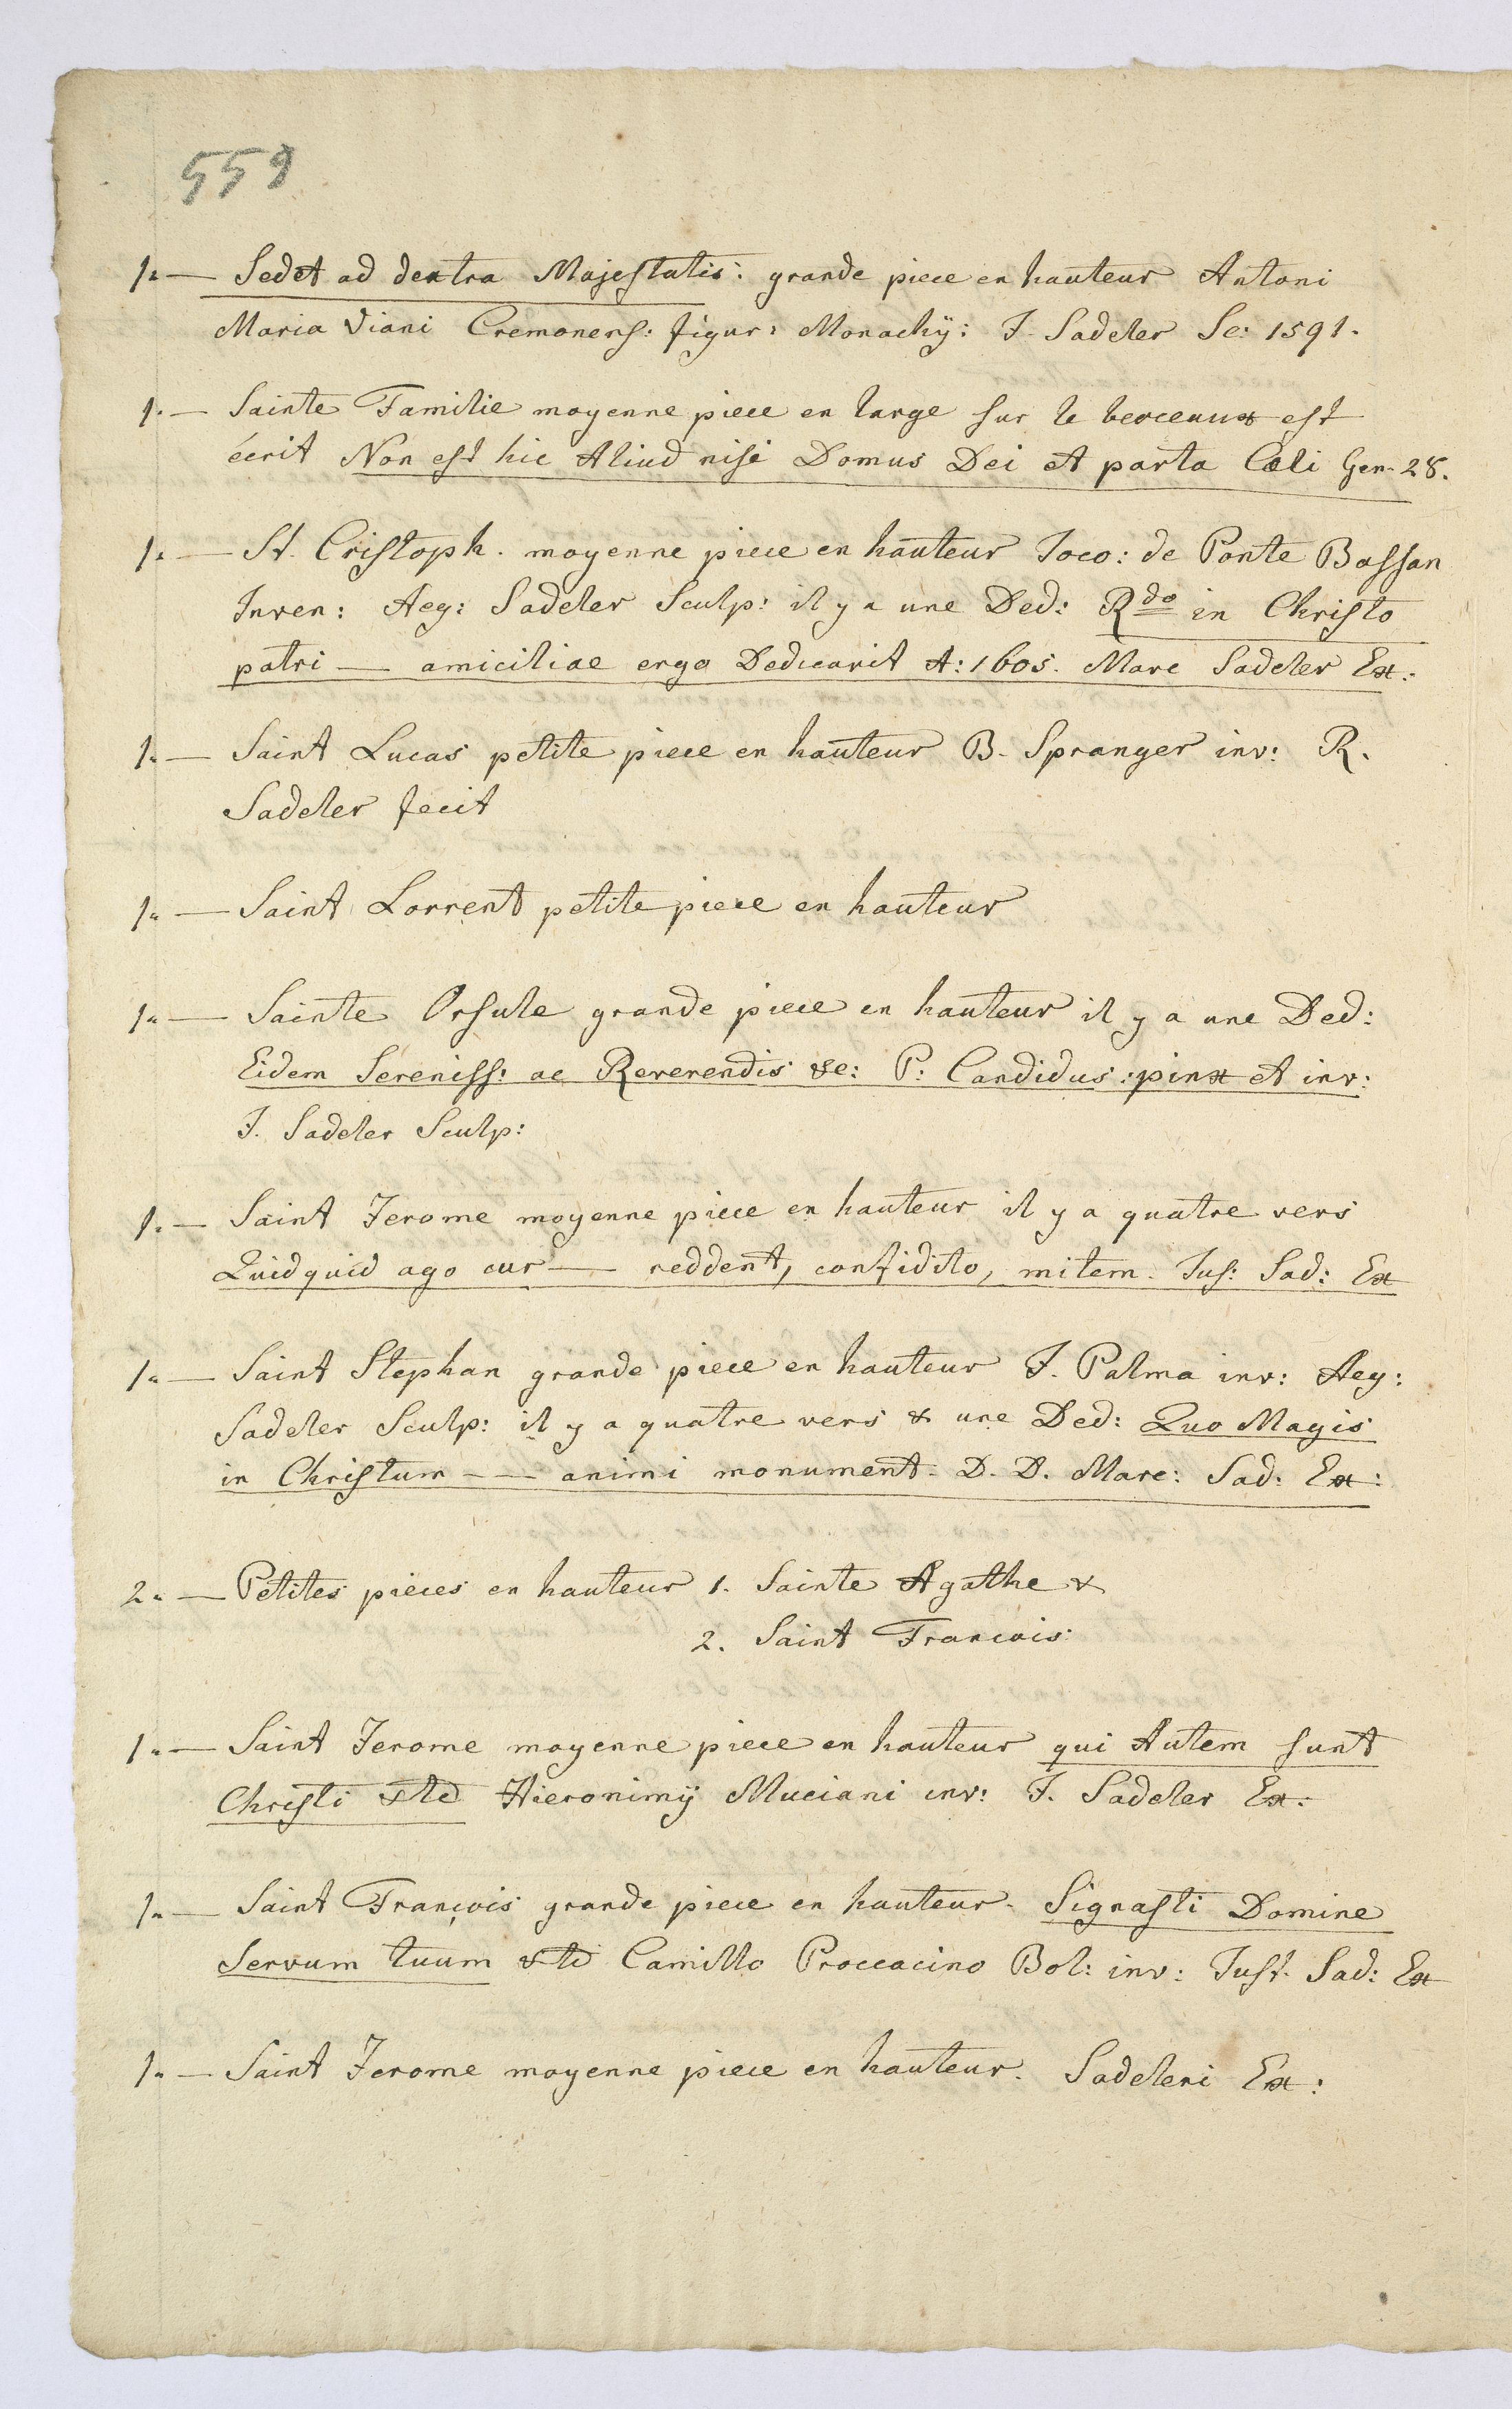 559
1. — Sedet ad dextra Majestatis: grande piece en hauteur Antoni
Maria Viani Cremonens: figur: Monachÿ: J. Sadeler Sc: 1591.
1. — Sainte Familie moyenne piece en large sur le berceaux est
écrit Non est hic Aliud nisi Domus Dei et porta Cœli Gen. 28.
1. — St. Cristoph. moyenne piece en hauteur Joco: de Ponte Bassan
Inven: Aeg: Sadeler Sculp: il y a une Ded: Rdo in Christo
patri — amicitiae ergo Dedicavit A: 1605. Marc Sadeler Ex:
1. — Saint Lucas petite piece en hauteur B. Spranger inv: R.
Sadeler fecit
1. — Saint Lorrent petite piece en hauteur
1. — Sainte Orsule grande piece en hauteur il y a une Ded:
Eidem Sereniss: ac Reverendis &c: P: Candidus: pinx et inv:
J. Sadeler Sculp:
1. — Saint Jerome moyenne piece en hauteur il y a quatre vers
Quidquid ago cur — reddent, confidito, mitem. Jus: Sad: Ex
1. — Saint Stephan grande piece en hauteur J. Palma inv: Aeg:
Sadeler Sculp: il y a quatre vers & une Ded: Quo Magis
in Christum — — animi monument. D. D. Marc: Sad: Ex:
2. — Petites pieces en hauteur 1. Sainte Agathe &
2. Saint Francois
1. — Saint Jerome moyenne piece en hauteur qui Autem sunt
Christi &tc Hieronimÿ Muciani inv: J. Sadeler Ex:
1. — Saint François grande piece en hauteur. Signasti Domine
Servum tuum &tc Camillo Proccacino Bol: inv: Just. Sad: Ex
1. — Saint Jerome moyenne piece en hauteur. Sadeleri Ex: